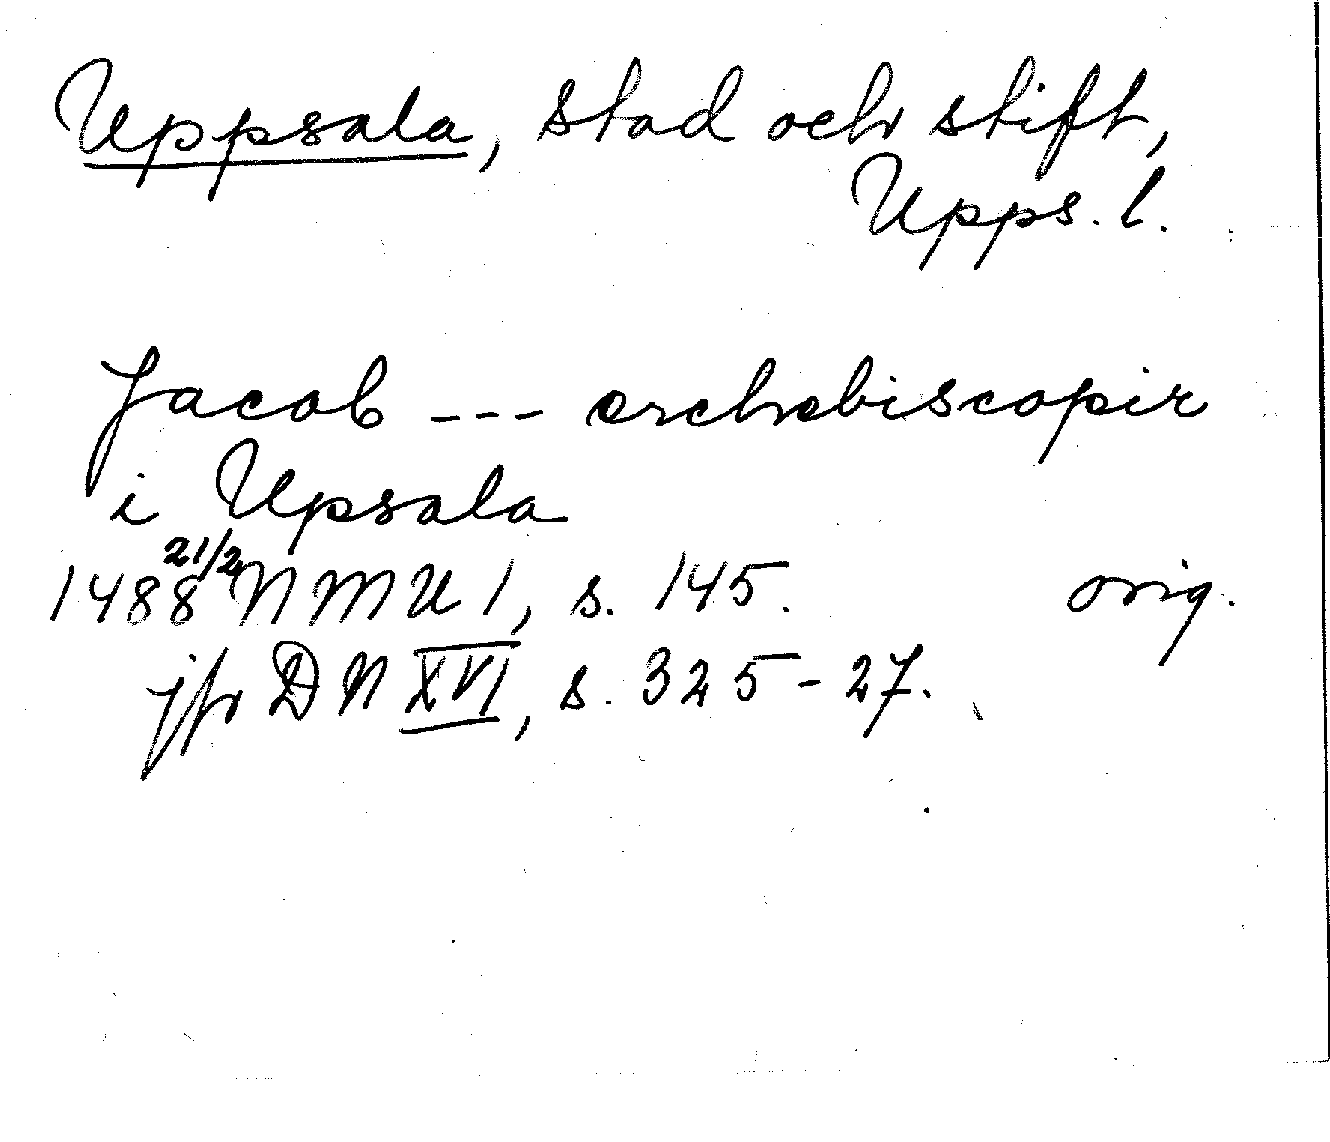 Uppsala, stad och stift,
Upps. l.
Jacob --- erchebiscopir
i Upsala
1488 21/2 NMU 1, s. 145. orig.
jfr DN XVI, s. 325-27.